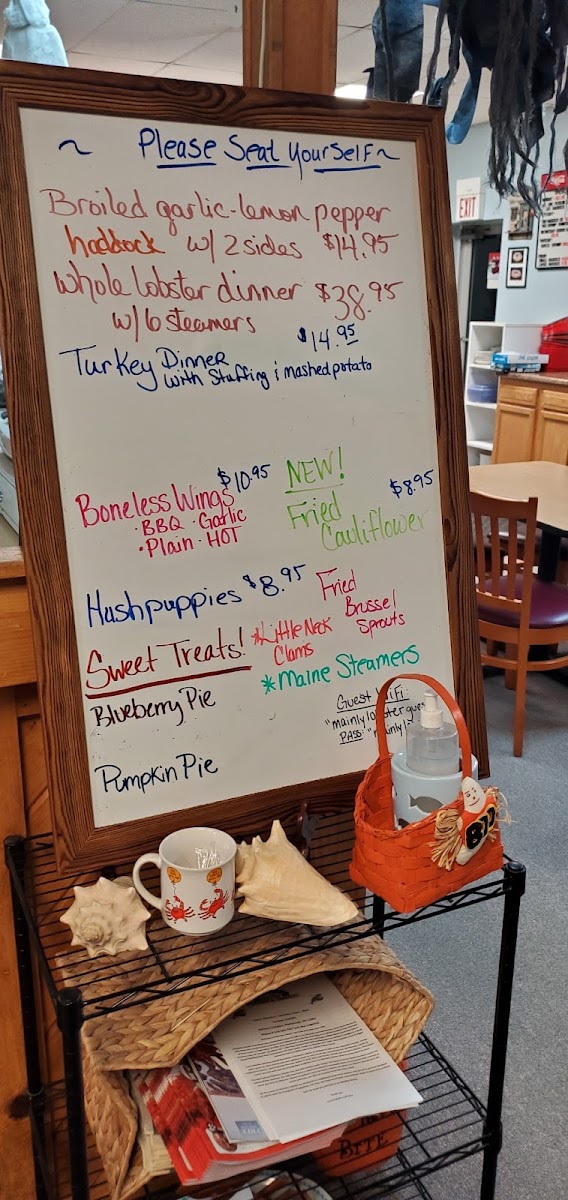 ~ Please Seat Yourself ~
Broiled garlic-lemon pepper
haddock w/ 2 sides $14.95
Whole lobster dinner $38.95
w/ 6 steamers
Turkey Dinner $14.95
with Stuffing i mashed potato
Boneless Wings $10.95
• BBQ • Garlic
• Plain • HOT
NEW!
Fried $8.95
Cauliflower
Hushpuppies $8.95
Fried
Brussel
Sprouts
Sweet Treats!
*Little Neck
Clams
*Maine Steamers
Blueberry Pie
Pumpkin Pie
Guest WiFi:
"mainly lobster gues
PASS: "mainly1
EXIT
BITE